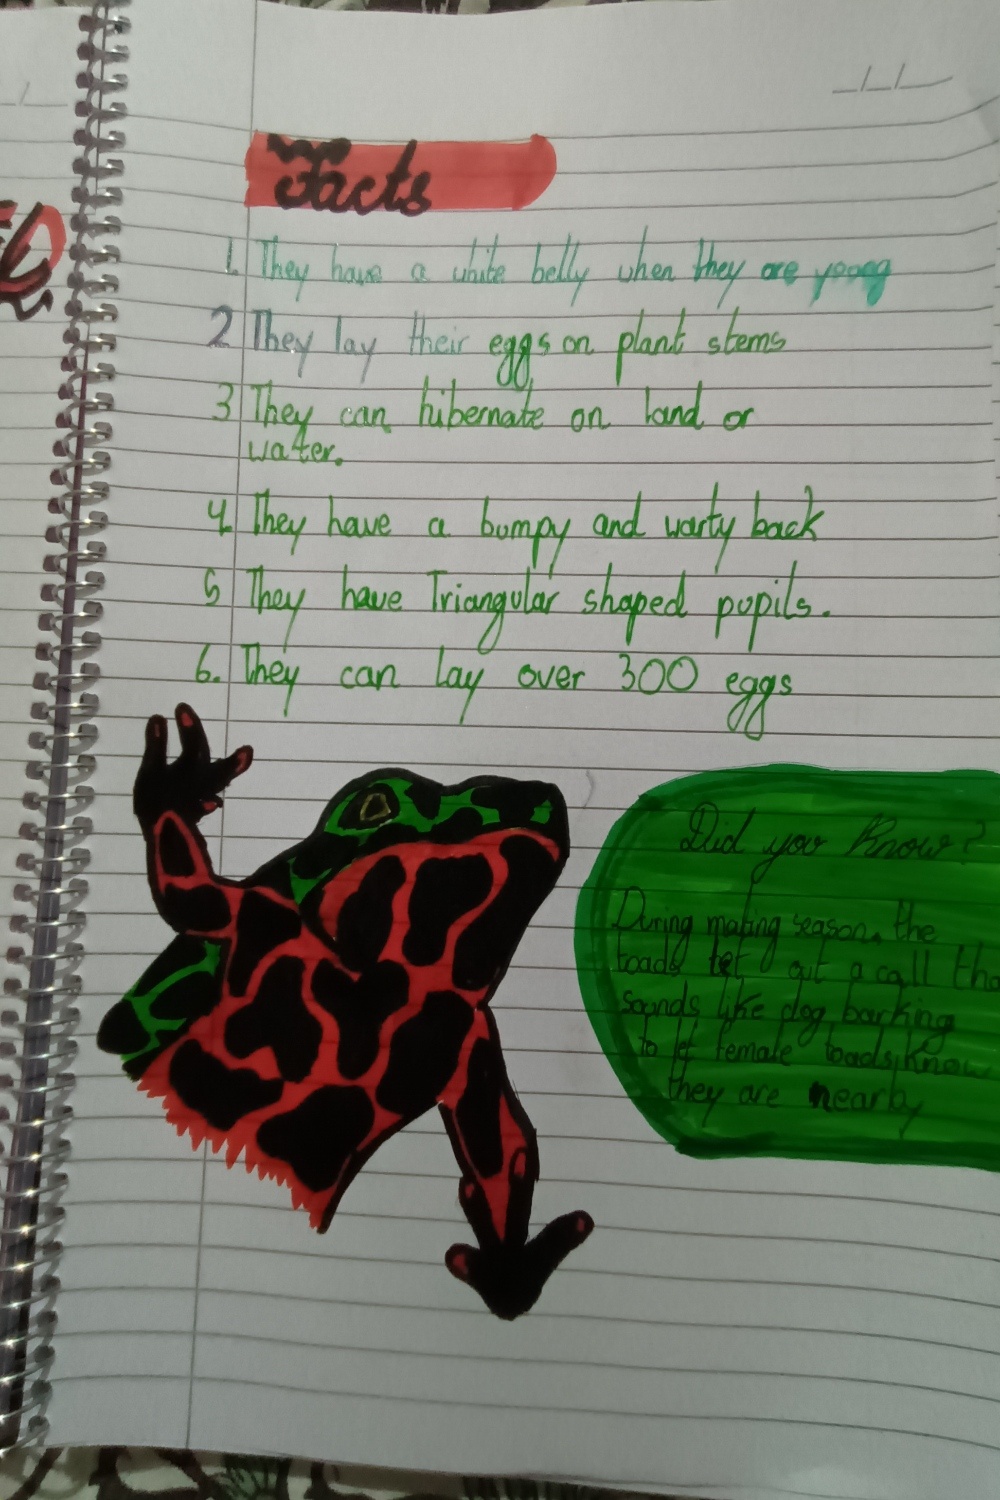 Facts
1. They have a white belly when they are young
2 They lay their eggs on plant stems
3 They can hibernate on land or
water.
4 They have a bumpy and warty back
5 They have Triangular shaped pupils.
6. They can lay over 300 eggs
Did you Know?
During mating season, the
toads let out a call tha
sounds like dog barking
to let female toads know
they are nearby